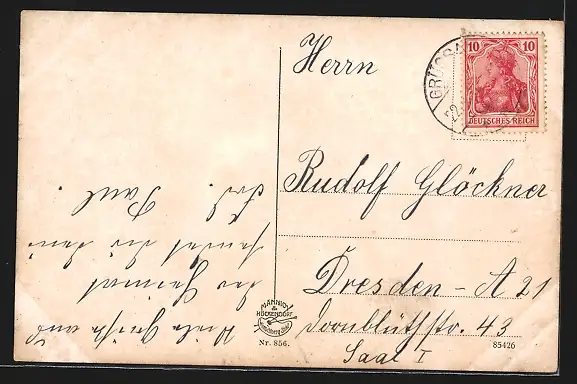 Herrn
Rudolf Glöckner
Dresden - A 21
Dornblüthstr. 43
Saal I
Viele Grüße aus
der Heimat
sendet dir dein
Frd. Paul.
10 10
DEUTSCHES REICH
GRÜSSA
MÄNNICH
&
HÖCKENDORF
Nr. 856.
85426